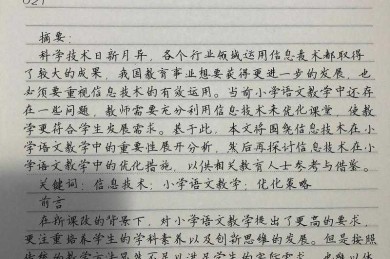 021
摘要：
科学技术日新月异，各个行业领域运用信息技术都取得
了较大的成果，我国教育事业想要获得更进一步的发展，也
必须要重视信息技术的有效运用。当前小学语文教学中还存
在一些问题，教师需要充分利用信息技术来优化课堂，使教
学更符合学生发展需求。基于此，本文将围绕信息技术在小
学语文教学中的重要性展开分析，然后再探讨信息技术在小
学语文教学中的优化措施，以供相关教育人士参考与借鉴。
关键词：信息技术；小学语文教学；优化策略
前言
在新课改的背景下，对小学语文教学提出了更高的要求，
更注重培养学生的学科素养以及创新思维的发展。但是按照
传统的教学方法显然不足以满足学生的实际需求，也难以体